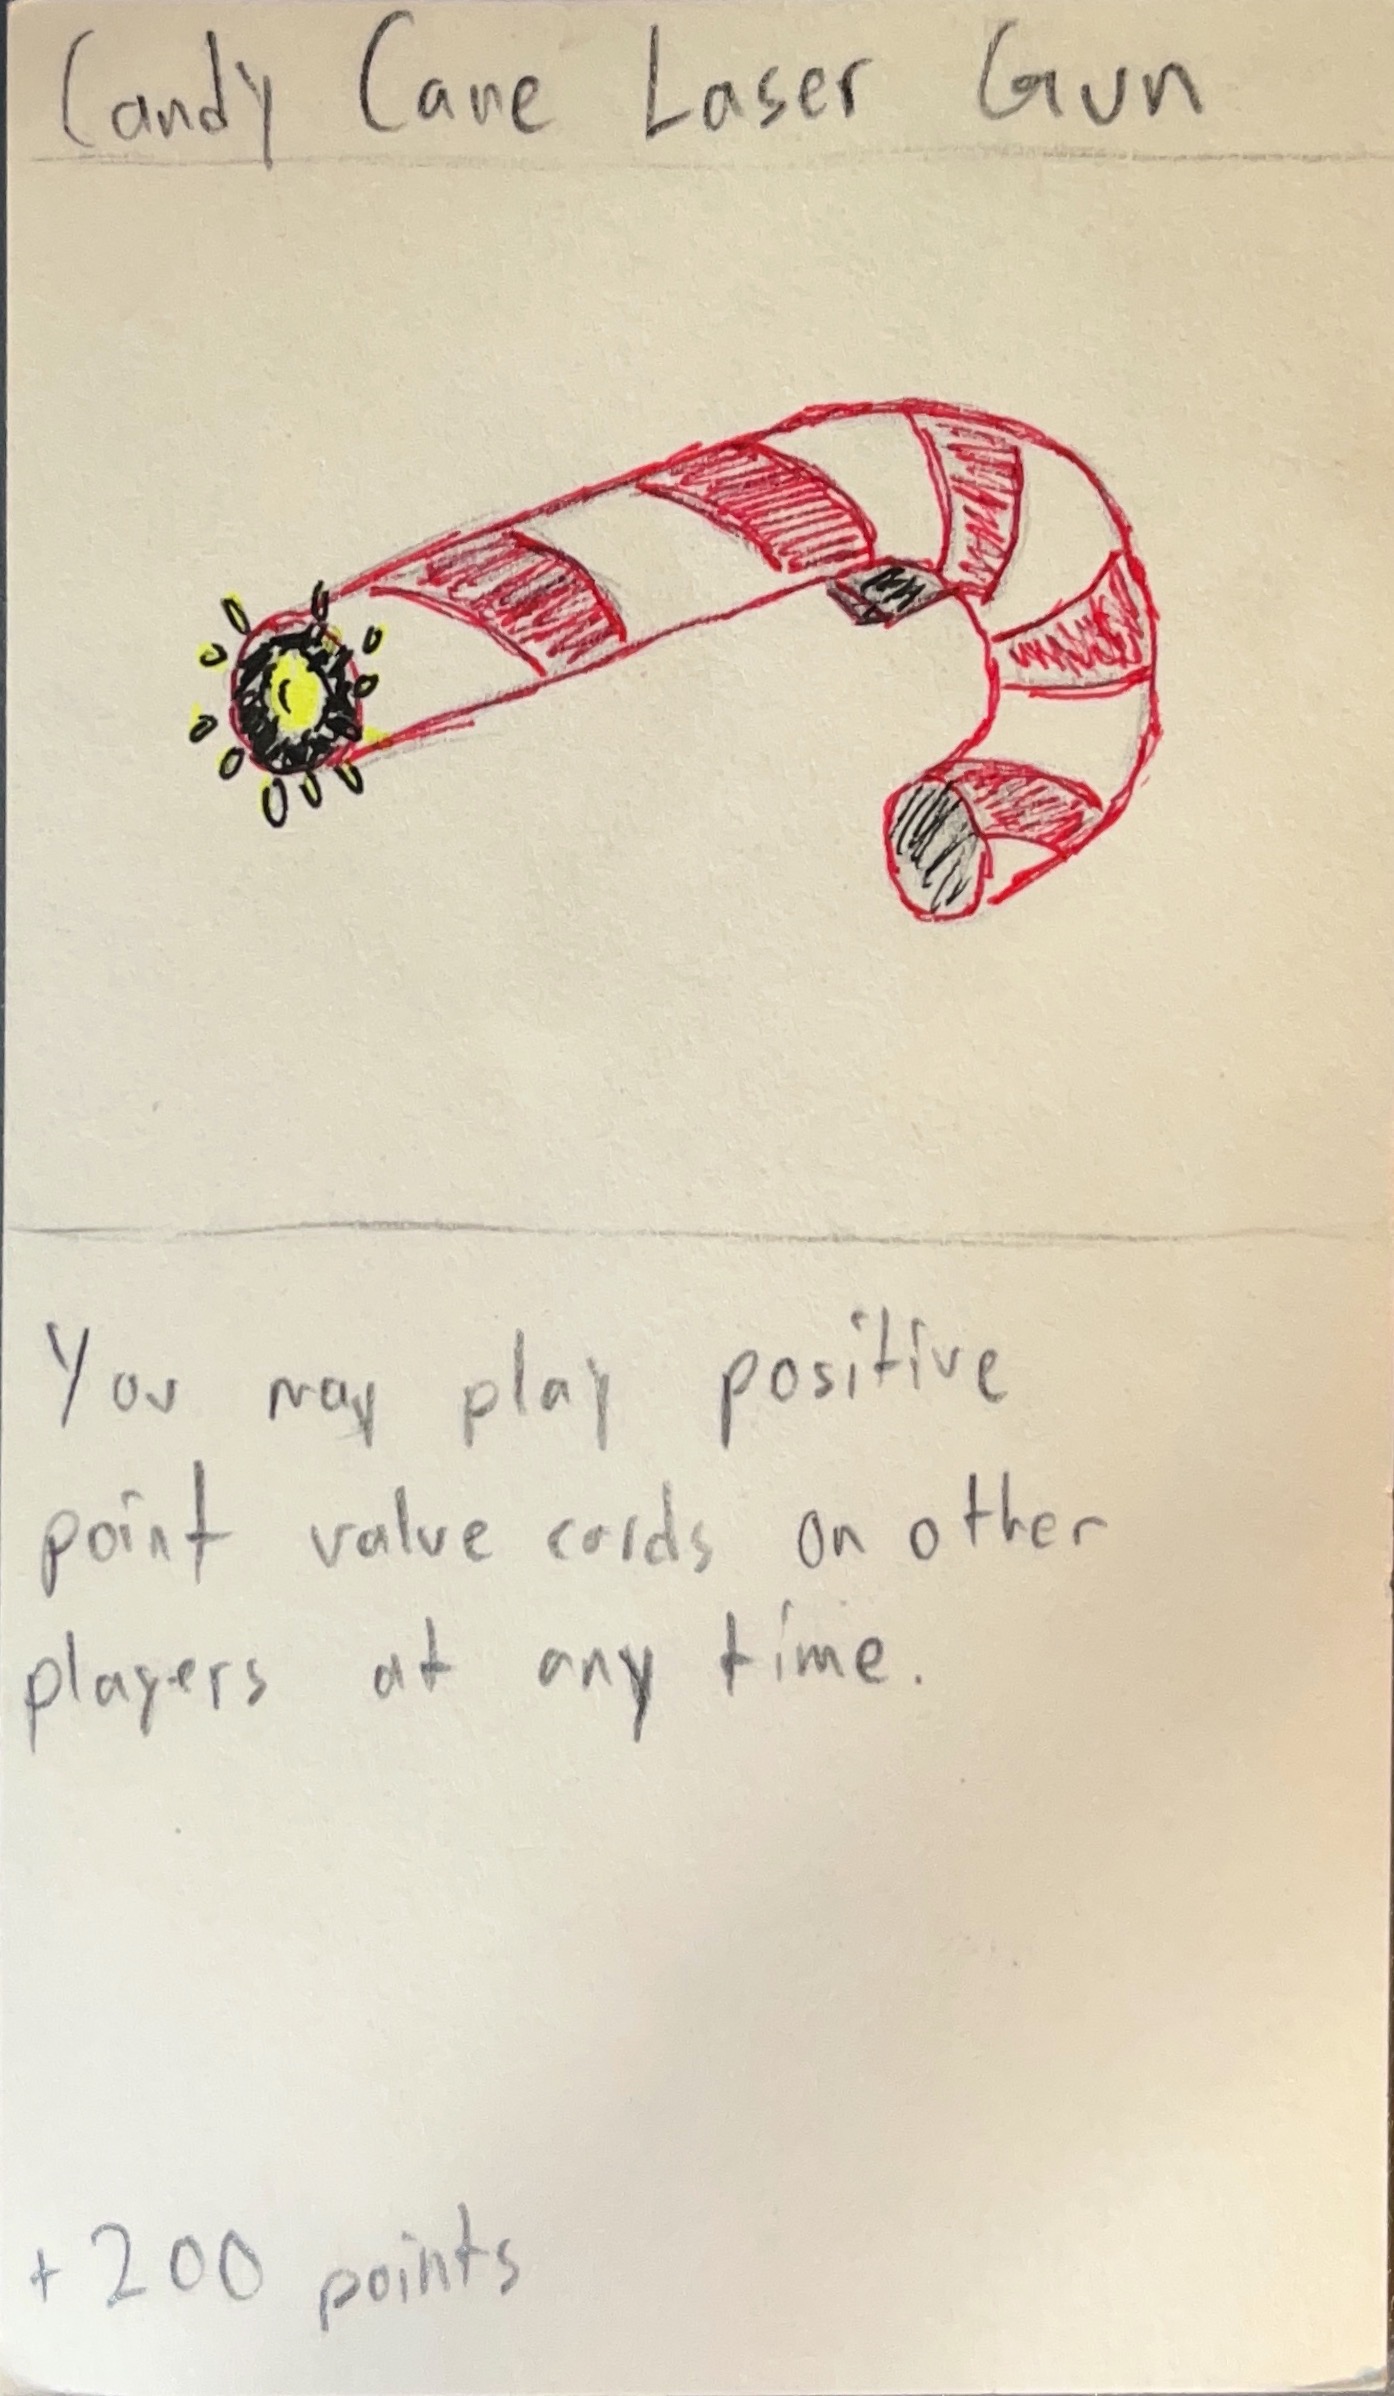 Candy Cane Laser Gun
You may play positive
point value cards on other
players at any time.
+200 points